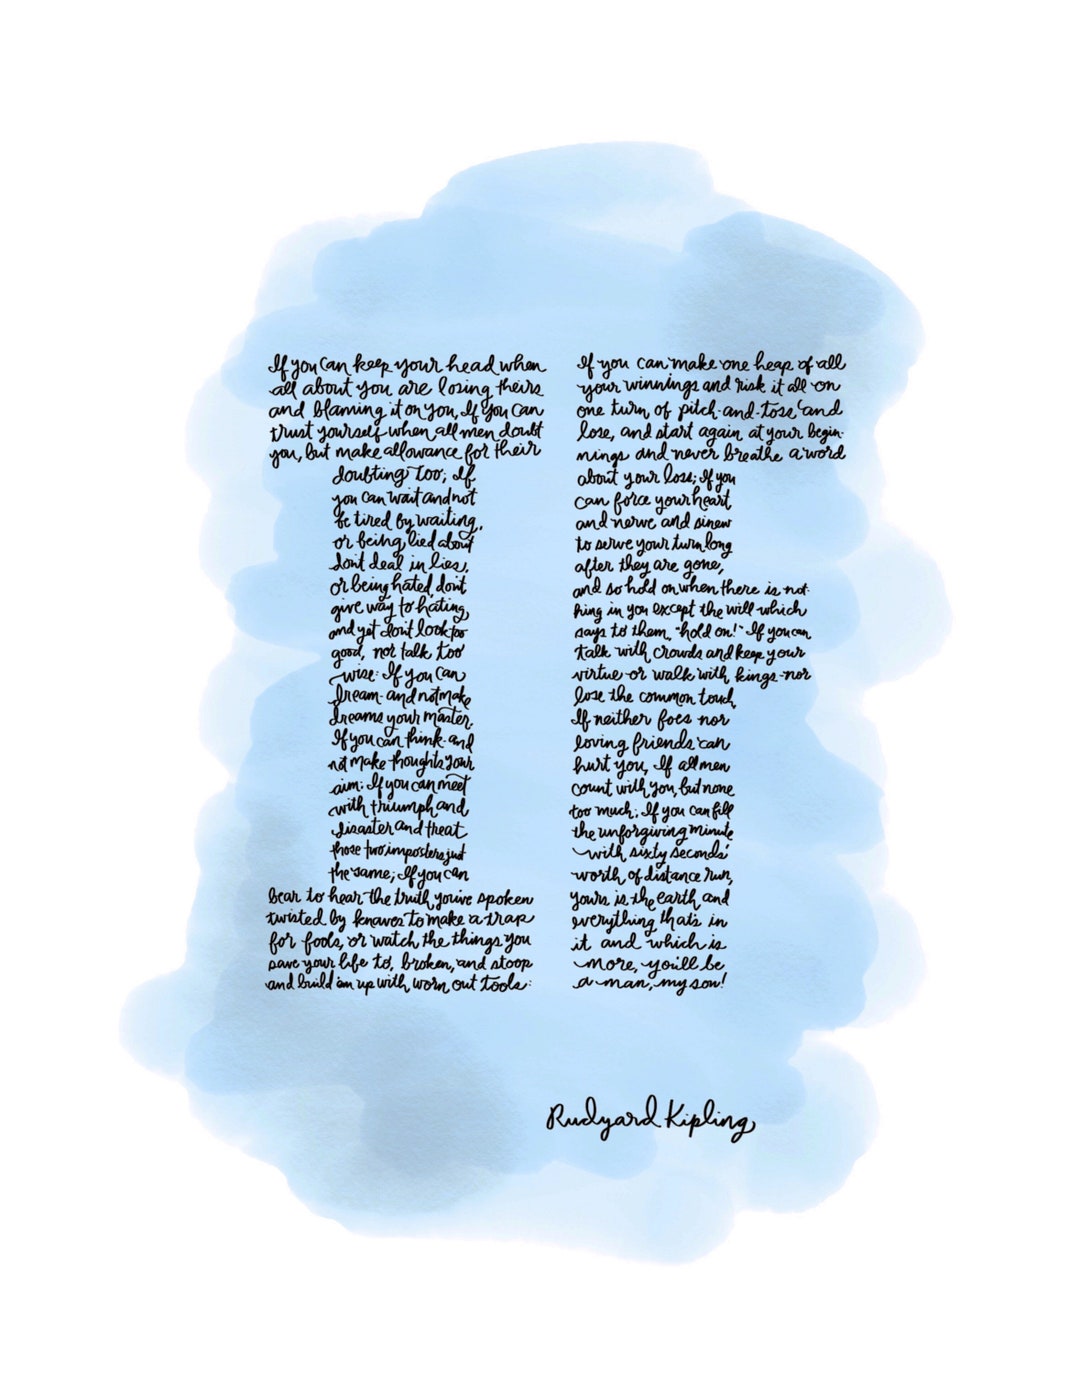 If you can keep your head when
all about you are losing theirs
and blaming it on you, If you can
trust yourself when all men doubt
you, but make allowance for their
doubting too; If
you can wait and not
be tired by waiting,
or being lied about
don't deal in lies,
or being hated don't
give way to hating,
and yet don't look too
good, nor talk too
wise: If you can
dream-and not make
dreams your master,
If you can think-and
not make thoughts your
aim; If you can meet
with triumph and
disaster and treat
those two imposters just
the same; If you can
bear to hear the truth you've spoken
twisted by knaves to make a trap
for fools, or watch the things you
gave your life to, broken, and stoop
and build 'em up with worn out tools:
If you can make one heap of all
your winnings and risk it all on
one turn of pitch-and-toss, and
lose, and start again at your begin-
nings and never breathe a word
about your loss; If you
can force your heart
and nerve and sinew
to serve your turn long
after they are gone,
and so hold on when there is not-
hing in you except the will which
says to them, "hold on!" If you can
talk with crowds and keep your
virtue or walk with kings-nor
lose the common touch,
If neither foes nor
loving friends can
hurt you, If all men
count with you, but none
too much; If you can fill
the unforgiving minute
with sixty seconds'
worth of distance run,
yours is the earth and
everything that's in
it and which is
more, you'll be
a man, my son!
Rudyard Kipling